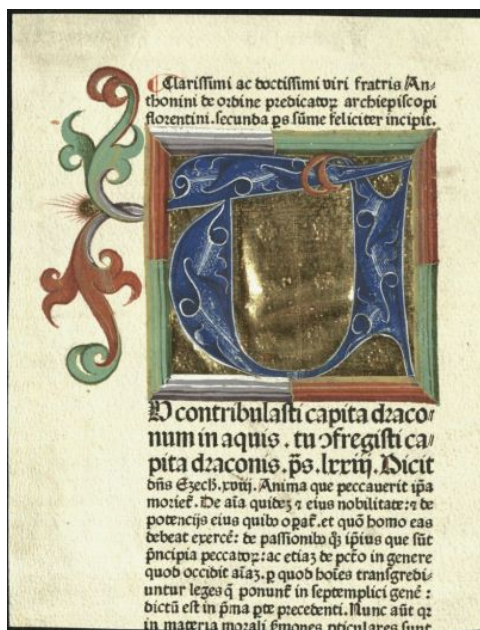 Clarissimi ac doctissimi viri fratris An-
thonini de ordine predicatoꝝ archiepiscopi
florentini. secunda ꝑs sūme feliciter incipit.
U contribulasti capita draco-
num in aquis. tu ꝯfregisti ca-
pita draconis. p̄s. lxxiij. Dicit
dn̄s Ezech. xviij. Anima que peccauerit ip̄a
morieť. De aīa quideꝫ ⁊ eius nobilitate: ⁊ de
potencijs eius quibꝰ opať. et quō homo eas
debeat exercē: de passionibꝰ q̄ꝫ ip̄ius que sūt
p̄ncipia peccatoꝝ: ac etiaꝫ de pctō in genere
quod occidit aīaꝫ. ꝑ quod hoīes transgredi-
untur leges q̄ ponunť in septemplici genē:
dictū est in p̄ma ꝑte precedenti. Nunc aūt qꝛ
in materia morali ẜmones ꝑticulares sunt